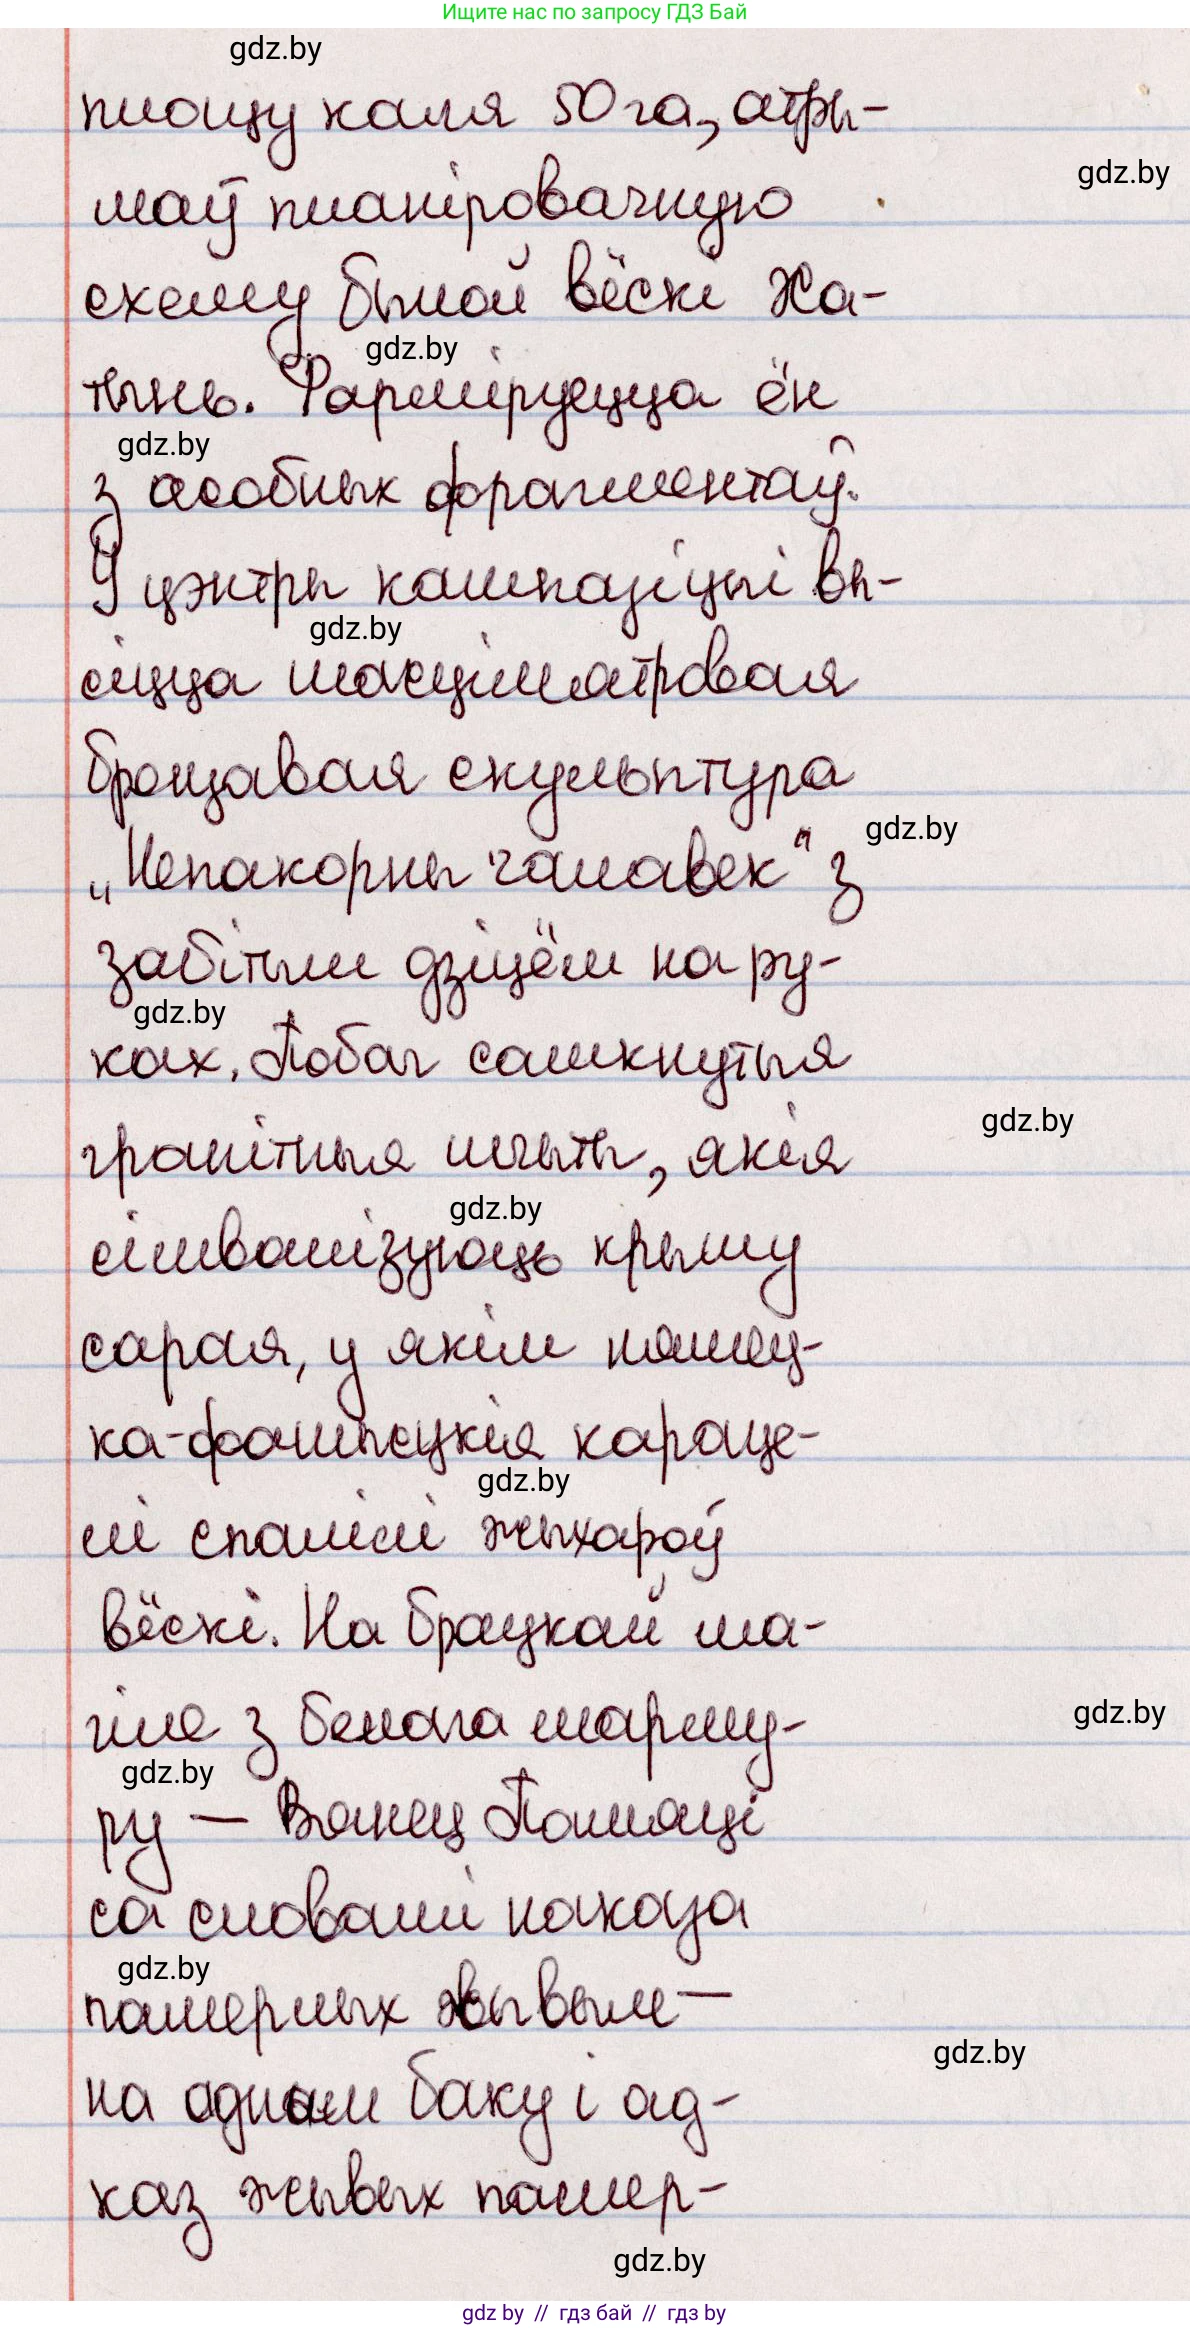 Ищите нас по запросу ГДЗ Бай
gdz.by
плошчу каля 50 га, атры-
gdz.by
маў планіровачную
схему былой вёскі Ха-
gdz.by
тынь. Фарміруецца ён
gdz.by
з асобных фрагментаў.
У цэнтры кампазіцыі вы-
gdz.by
сіцца шасціметровая
бронзавая скульптура
gdz.by
„Непакорны чалавек" з
забітым дзіцём на ру-
gdz.by
ках. Побач самкнутыя
gdz.by
гранітныя пліты, якія
gdz.by
сімвалізуюць крышу
сарая, у якім нямец-
ка-фашысцкія караце-
gdz.by
лі спалілі жыхароў
вёскі. На брацкай ма-
gdz.by
гіле з белага марму-
gdz.by
ру — Вянец Памяці
са словамі наказа
gdz.by
памерлых жывым —
gdz.by
на адным баку і ад-
каз жывых памер-
gdz.by
gdz by // гдз бай // гдз by